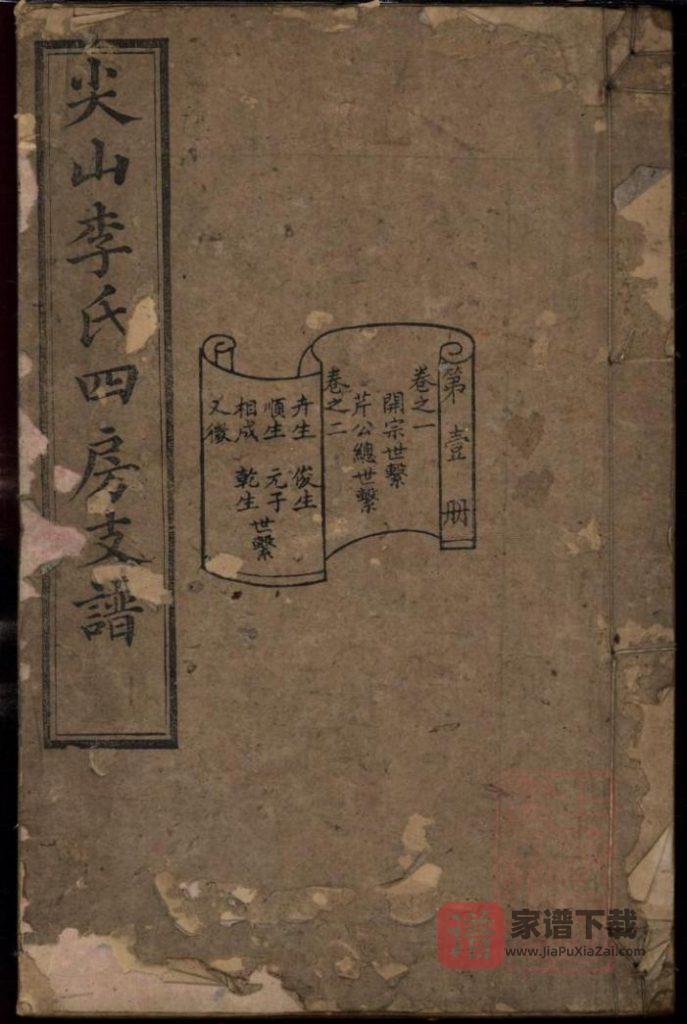 尖山李氏四房支譜
第壹册
卷之一
開宗世繫
芹公總世繫
卷之二
卉生 俊生
順生 元子
相成 乾生
又徵
世繫
谱
家谱下载
www.JiaPuXiaZai.com